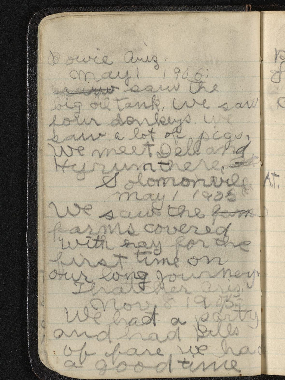 Bowie Ariz.
May 1 1905.
saw the
big oil tank. We saw
four donkeys. we
saw a lot of pigs,
We meet Dell and
Hyrum there,
Solomonville
May 1 1905
We saw the farm
farms covered
with hay for the
first time on
our long journey
Thatcher Ariz.
Nov 8 1905
We had a party
and had bills
of fare we had
a good time